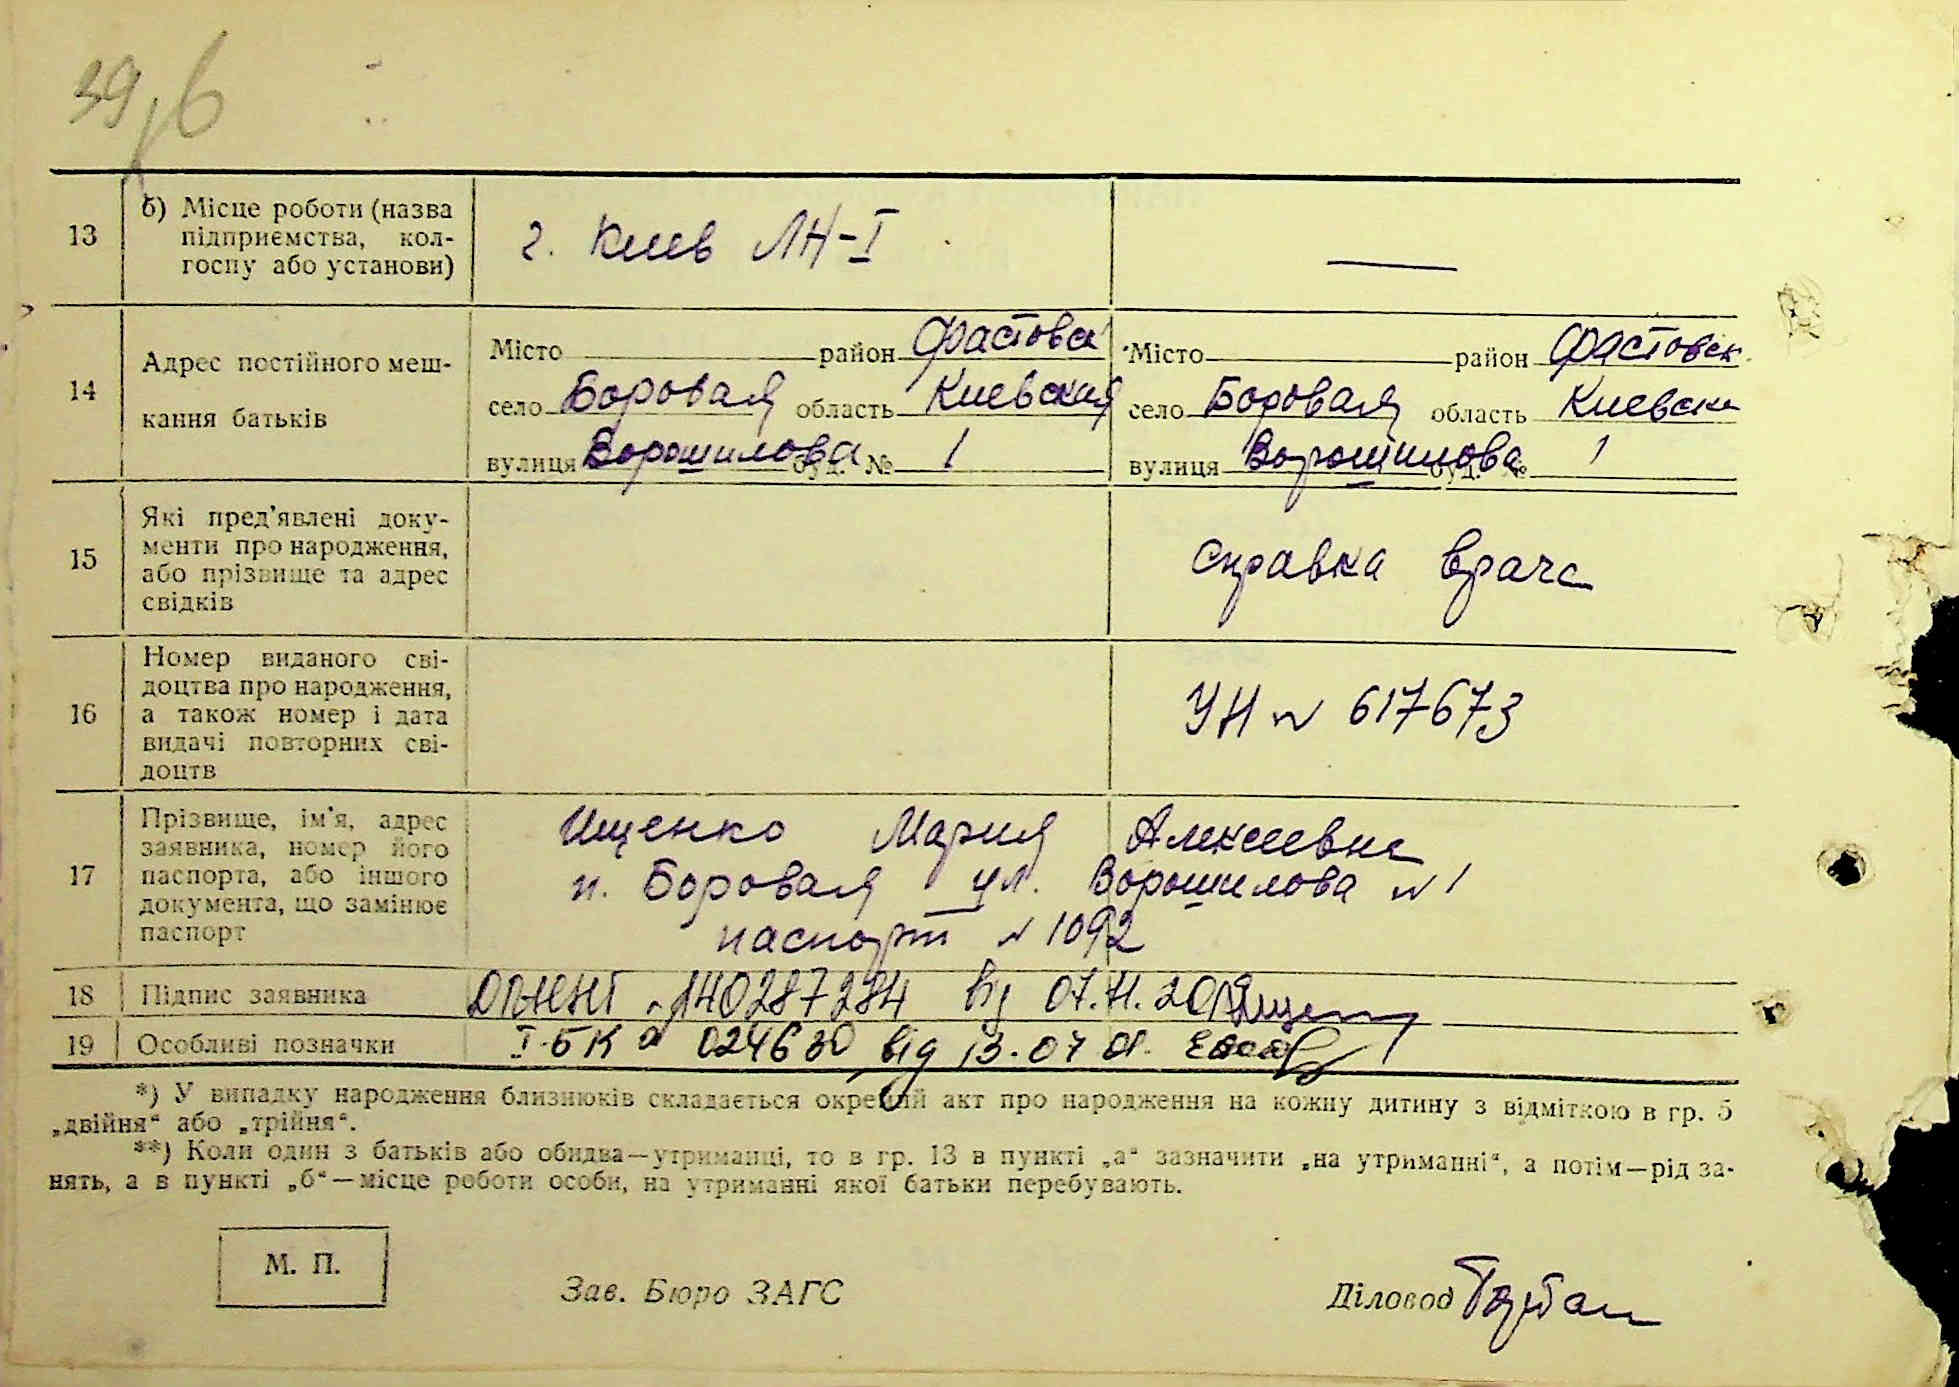 39
б) Місце роботи (назва
13 підприємства, кол-
госпу або установи)
г. Киев ЛН-I
—
14 Адрес постійного меш-
кання батьків
Місто район Фастовск
село Боровая область Киевская
вулиця Ворошилова буд. № 1
Місто район Фастовск
село Боровая область Киевска
вулиця Ворошилова буд. № 1
Які пред'явлені доку-
15 менти про народження,
або прізвище та адрес
свідків
справка врача
Номер виданого сві-
доцтва про народження,
16 а також номер і дата
видачі повторних сві-
доцтв
УН № 617673
Прізвище, ім'я, адрес
заявника, номер його
17 паспорта, або іншого
документа, що замінює
паспорт
Ищенко Мария Алексеевна
п. Боровая ул. Ворошилова № 1
паспорт № 1092
18 Підпис заявника від 07.11.2019
19 Особливі позначки I-БК № 024630 від 13.07.01.
*) У випадку народження близнюків складається окремий акт про народження на кожну дитину з відміткою в гр. 5
„двійня“ або „трійня“.
**) Коли один з батьків або обидва—утриманці, то в гр. 13 в пункті „а“ зазначити „на утриманні“, а потім—рід за-
нять, а в пункті „б“—місце роботи особи, на утриманні якої батьки перебувають.
М. П.
Зав. Бюро ЗАГС
Діловод